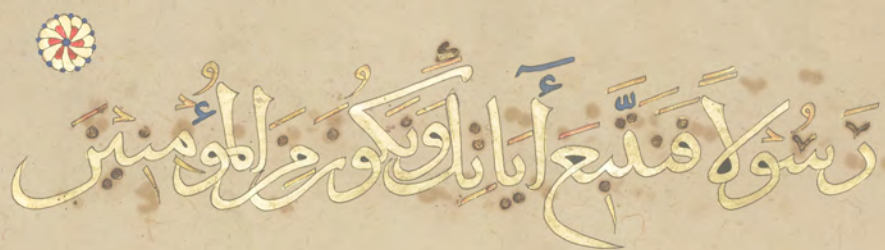 رَسُولًا فَنَتَّبِعَ أَيَاتِكَ وَنَكُونَ مِنَ الْمُؤْمِنِينَ